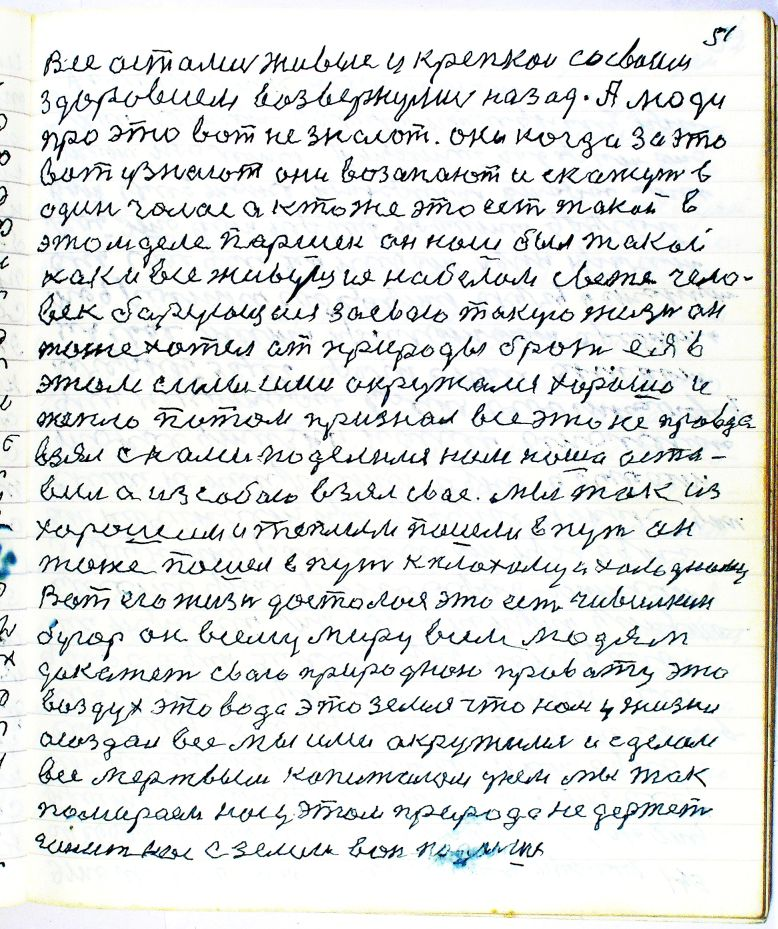 51
Все осталис живые и крепкои сосвоим
здоровием возвернулис назад. А люди
про это вот не знают. они когда за это
вот узнают они возапают и скажут в
один голос а кто же это ест такой в
этом деле паршек он наш был такой
как и все живущия на белом свете чело-
век борющия засвою такую жизн он
тоже хотел от природы брат еяв
этом силы ими окружался хорошо и
тепло потом признал все это не правда
взял снами поделился нам наша оста-
вил а изсобою взял свае. мы так из
хорошим и теплым пошли в пут он
тоже пошел в пут к плохому и холодному
Вот его жизн досталоя это ест чивилкин
бугор он всему миру всем людям
докажет свою природною правоту это
воздух это вода это земля что нам у жизни
асоздал все мы ими окружился и сделал
все мертвым капиталом унем мы так
помираем нас у этом природа не держет
гонит нас с земли вон